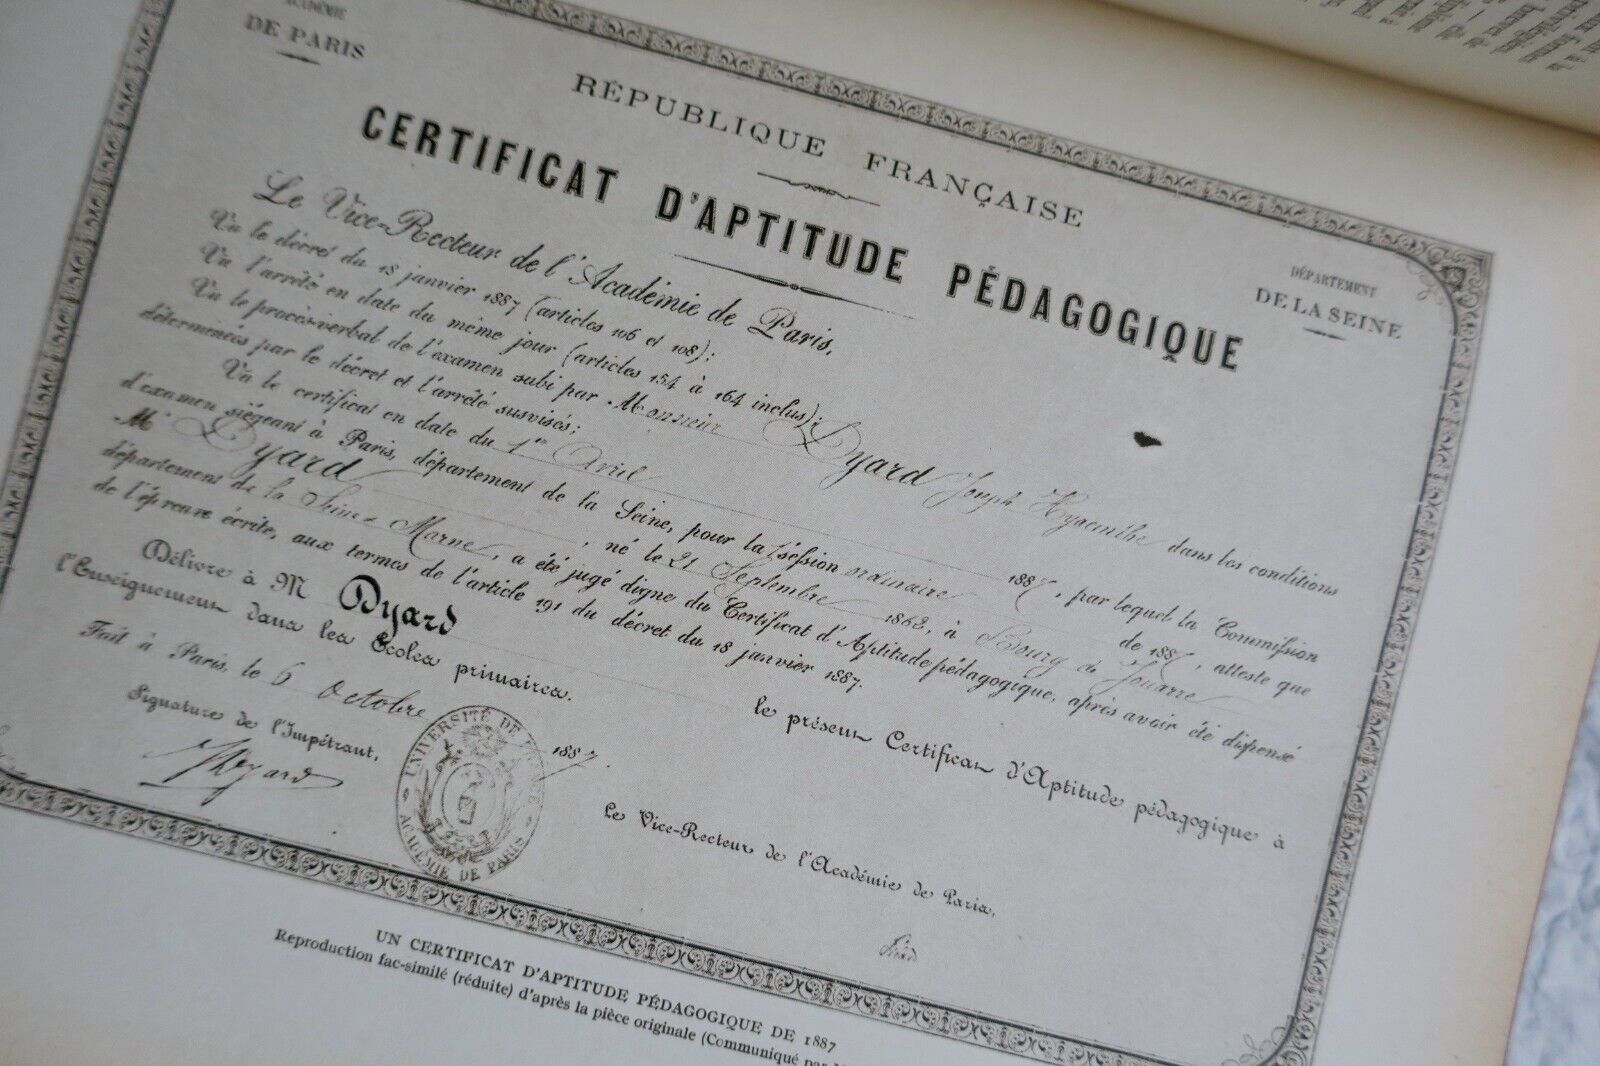 ACADÉMIE
DE PARIS
RÉPUBLIQUE FRANÇAISE
CERTIFICAT D'APTITUDE PÉDAGOGIQUE
DÉPARTEMENT
DE LA SEINE
Le Vice-Recteur de l'Académie de Paris,
Vu le décret du 18 janvier 1887 (articles 106 et 108);
Vu l'arrêté en date du même jour (articles 154 à 164 inclus);
Vu le procès-verbal de l'examen subi par Monsieur Dyard Joseph Hyacinthe dans les conditions
déterminées par le décret et l'arrêté susvisés;
Vu le certificat en date du 1er Avril 1887, par lequel la Commission
d'examen siégeant à Paris, département de la Seine, pour la session ordinaire de 1887, atteste que
Mr Dyard, né le 21 Septembre 1862, à Bourg de Jouarre
département de la Seine & Marne, a été jugé digne du Certificat d'Aptitude pédagogique, après avoir été dispensé
de l'épreuve écrite, aux termes de l'article 191 du décret du 18 janvier 1887.
Délivre à M Dyard le présent Certificat d'Aptitude pédagogique à
l'Enseignement dans les Écoles primaires.
Fait à Paris, le 6 Octobre 1887.
Signature de l'Impétrant,
Dyard
UNIVERSITÉ DE FRANCE
ACADÉMIE DE PARIS
Le Vice-Recteur de l'Académie de Paris,
UN CERTIFICAT D'APTITUDE PÉDAGOGIQUE DE 1887
Reproduction fac-similé (réduite) d'après la pièce originale (Communiqué par